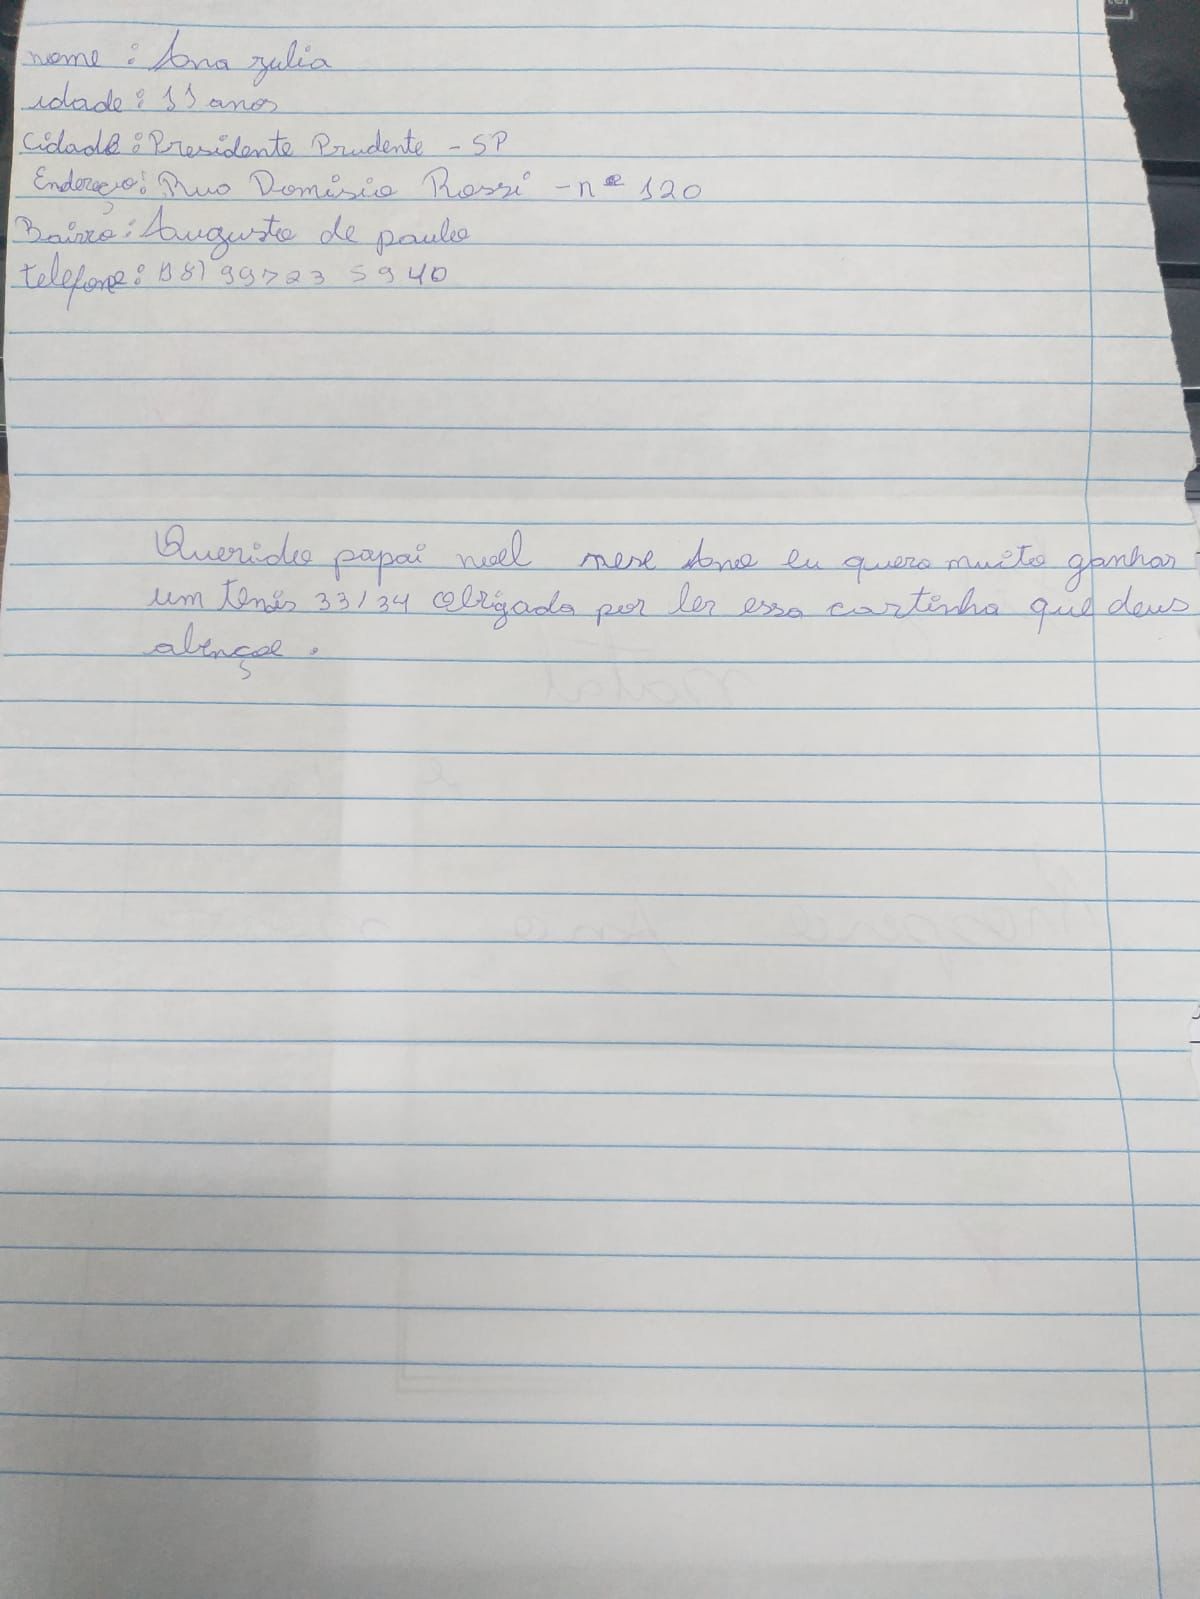 nome : Ana zulia
idade : 11 anos
Cidade : Presidente Prudente - SP
Endereço : Rua Domisio Rossi - nº 120
Bairro : Augusto de paulo
telefone : 18) 99723 5940
Querido papai noel nese Ano eu quero muito ganhar
um tenis 33/34 obrigada por ler essa cartinha que deus
abençoe .
natal
e
Prospero Ano